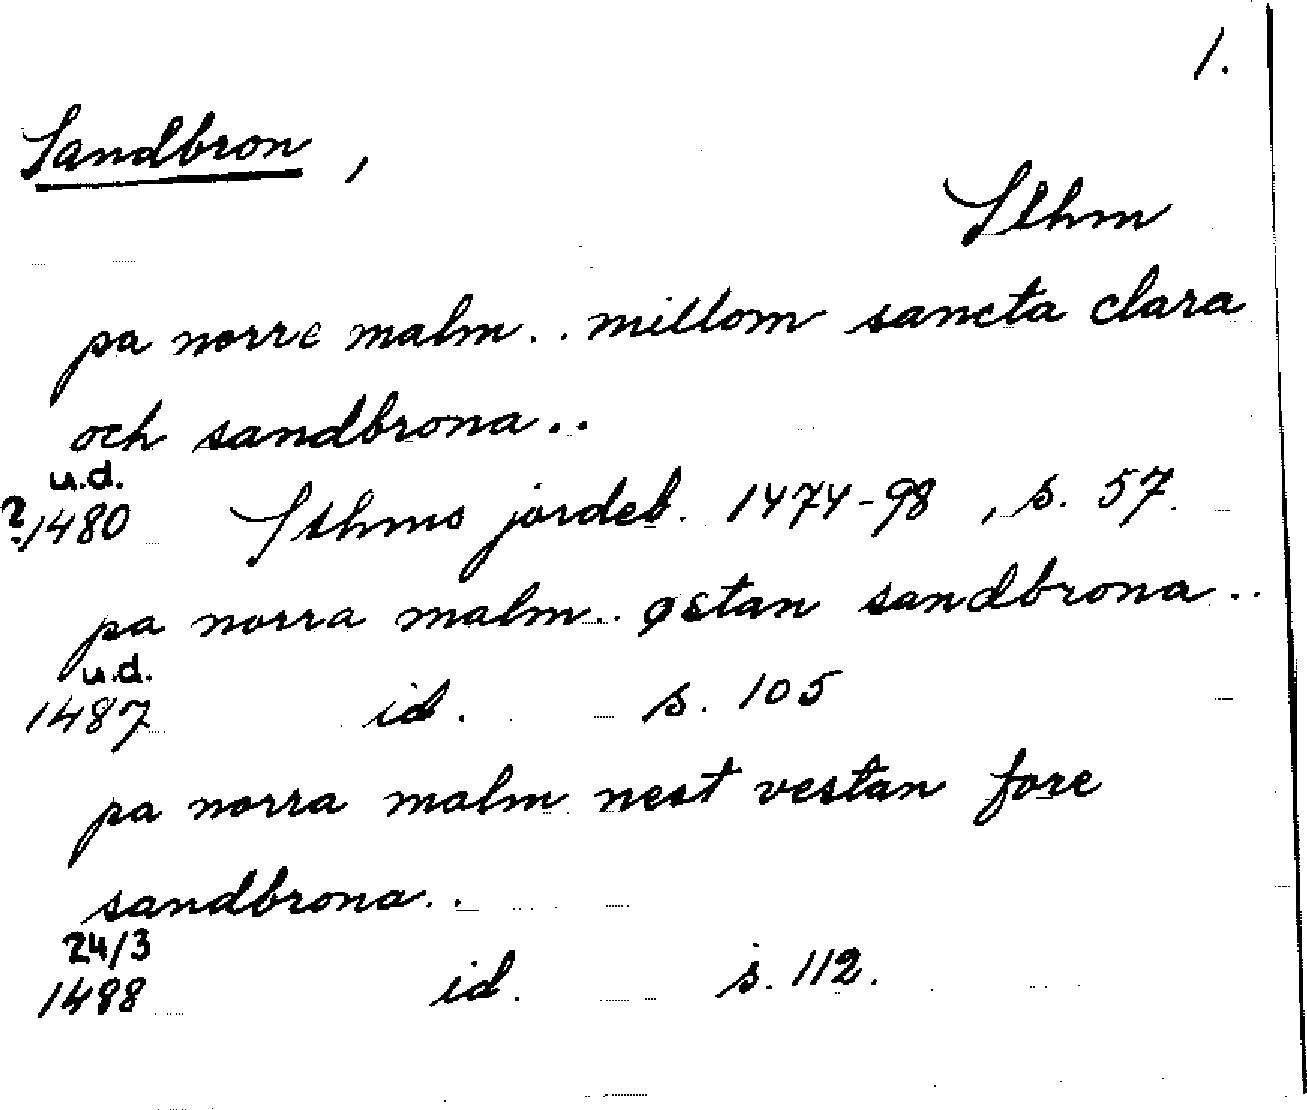 1.
Sandbron,
Sthm
pa norre malm.. millom sancta clara
och sandbrona..
u.d.
?1480 Sthms jordeb. 1474-98, s. 57.
pa norra malm.. østan sandbrona..
u.d.
1487 id. s. 105
pa norra malm nest vestan fore
sandbrona..
24/3
1488 id. s. 112.